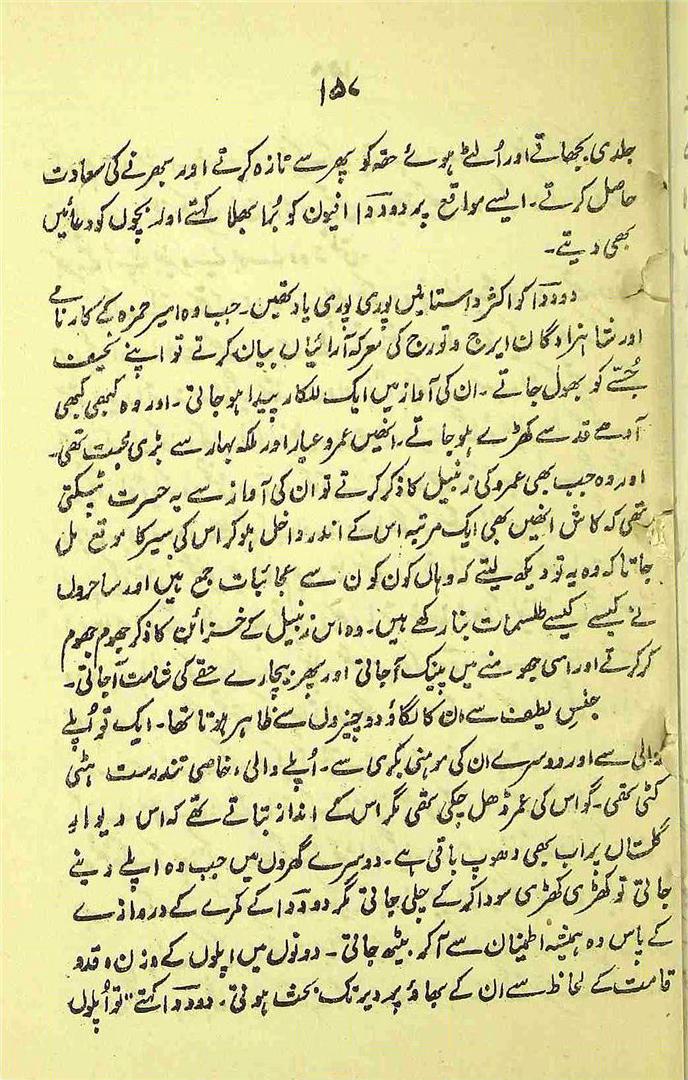 ۱۵۷
جلدی بجھاتے اور اُلٹے ہوئے حقہ کو پھر سے تازہ کرتے اور بھرنے کی سعادت
حاصل کرتے۔ ایسے مواقع پر دودوا افیون کو بُرا بھلا کہتے اور بچوں کو دعائیں
بھی دیتے۔
دودوا کو اکثر داستانیں پوری پوری یاد تھیں۔ جب وہ امیر حمزہ کے کارنامے
اور شاہزادگان ایرج و تورج کی معرکہ آرائیاں بیان کرتے تو اپنے نحیف
جُثے کو بھول جاتے۔ ان کی آواز میں ایک للکار پیدا ہو جاتی۔ اور وہ کبھی کبھی
آدھے قد سے کھڑے ہو جاتے۔ انھیں عمرو عیار اور ملکہ بہار سے بڑی محبت تھی۔
اور وہ جب بھی عمرو کی زنبیل کا ذکر کرتے تو ان کی آواز سے یہ حسرت ٹپکتی
تھی کہ کاش انھیں بھی ایک مرتبہ اس کے اندر داخل ہو کر اس کی سیر کا موقع مل
جاتا کہ وہ یہ تو دیکھ لیتے کہ وہاں کون کون سے عجائبات جمع ہیں اور ساحروں
نے کیسے کیسے طلسمات بنا رکھے ہیں۔ وہ اس زنبیل کے خزائن کا ذکر جھوم جھوم
کر کرتے اور اسی جھومنے میں پینک آ جاتی اور پھر بیچارے حقے کی شامت آ جاتی۔
جنسِ لطیف سے ان کا لگاؤ دو چیزوں سے ظاہر ہوتا تھا۔ ایک تو اُپلے
والی سے اور دوسرے ان کی بکری سے۔ اُپلے والی، خاصی تندرست ہٹی
کٹی تھی۔ گو اس کی عمر ڈھل چکی تھی مگر اس کے انداز بتاتے تھے کہ اس دیوارِ
گلستاں پر اب بھی دھوپ باقی ہے۔ دوسرے گھروں میں جب وہ اپلے دینے
جاتی تو کھڑی کھڑی سودا کر کے چلی جاتی مگر دودوا کے کمرے کے دروازے
کے پاس وہ ہمیشہ اطمینان سے آ کر بیٹھ جاتی۔ دونوں میں اپلوں کے وزن، قد و
قامت کے لحاظ سے ان کے بھاؤ پر دیر تک بحث ہوتی۔ دودوا کہتے "تو اُپلوں